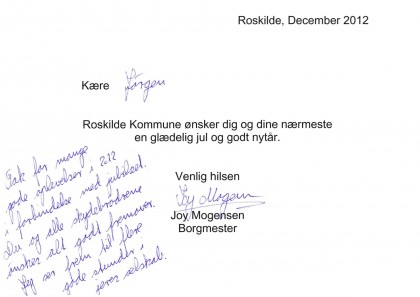 Roskilde, December 2012
Kære Jørgen
Roskilde Kommune ønsker dig og dine nærmeste
en glædelig jul og godt nytår.
Venlig hilsen
Joy Mogensen
Joy Mogensen
Borgmester
Tak for mange
gode oplevelser i 2012
i forbindelse med jubilæet.
Du og alle skydebrødrene
ønskes alt godt fremover.
Jeg ser frem til flere
gode stunder i
jeres selskab.